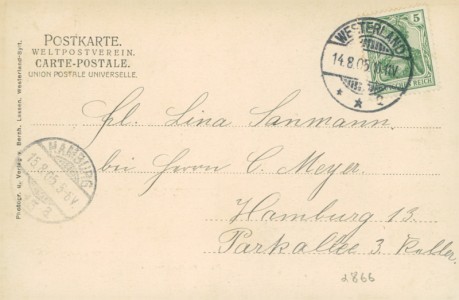 POSTKARTE.
WELTPOSTVEREIN.
CARTE-POSTALE.
UNION POSTALE UNIVERSELLE.
5
REICH
WESTERLAND
14.8.05
c
HAMBURG
15.8.05.5-6V
Photogr. u. Verlag v. Bernh. Lassen, Westerland-Sylt.
Frl. Lina Sanmann.
bei Herrn C. Meyer.
Hamburg 13.
Parkallee 3.
2866